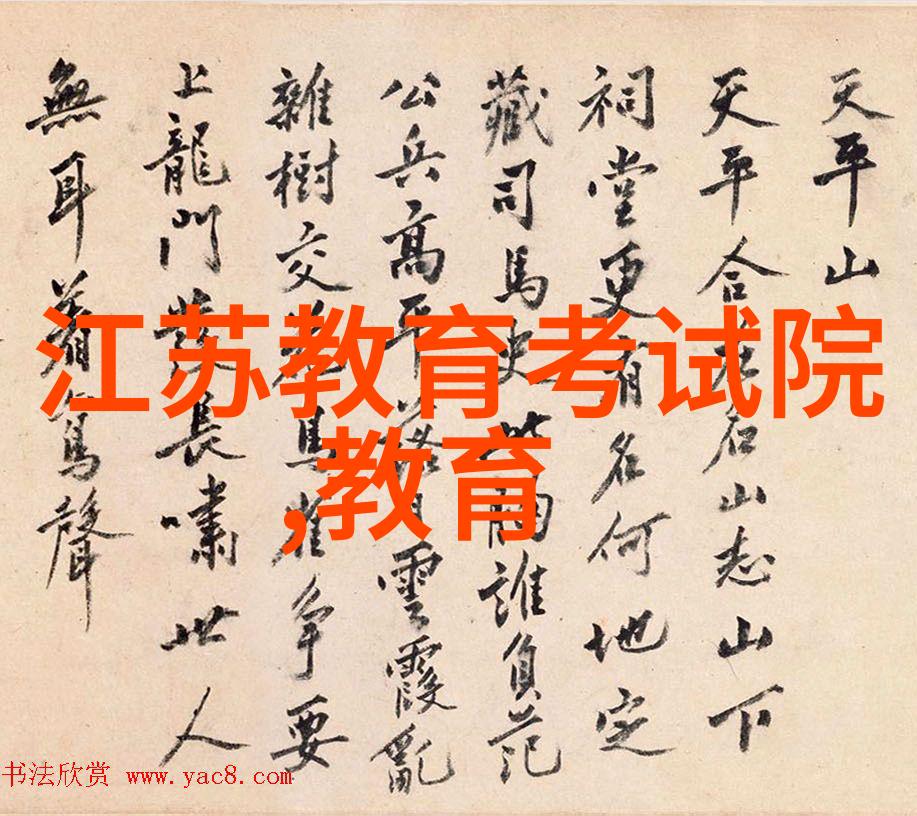 天平山
天平合石山志山下
祠堂更有名何地定
藏司馬史此誰負范
公兵高平雲霞亂
雜樹交鳥雀爭要
上龍門發長嘯世人
無耳聲
江苏教育考试院
,教育
书法欣赏 www.yac8.com